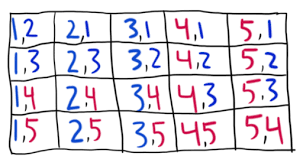 1,2 2,1 3,1 4,1 5,1
1,3 2,3 3,2 4,2 5,2
1,4 2,4 3,4 4,3 5,3
1,5 2,5 3,5 4,5 5,4